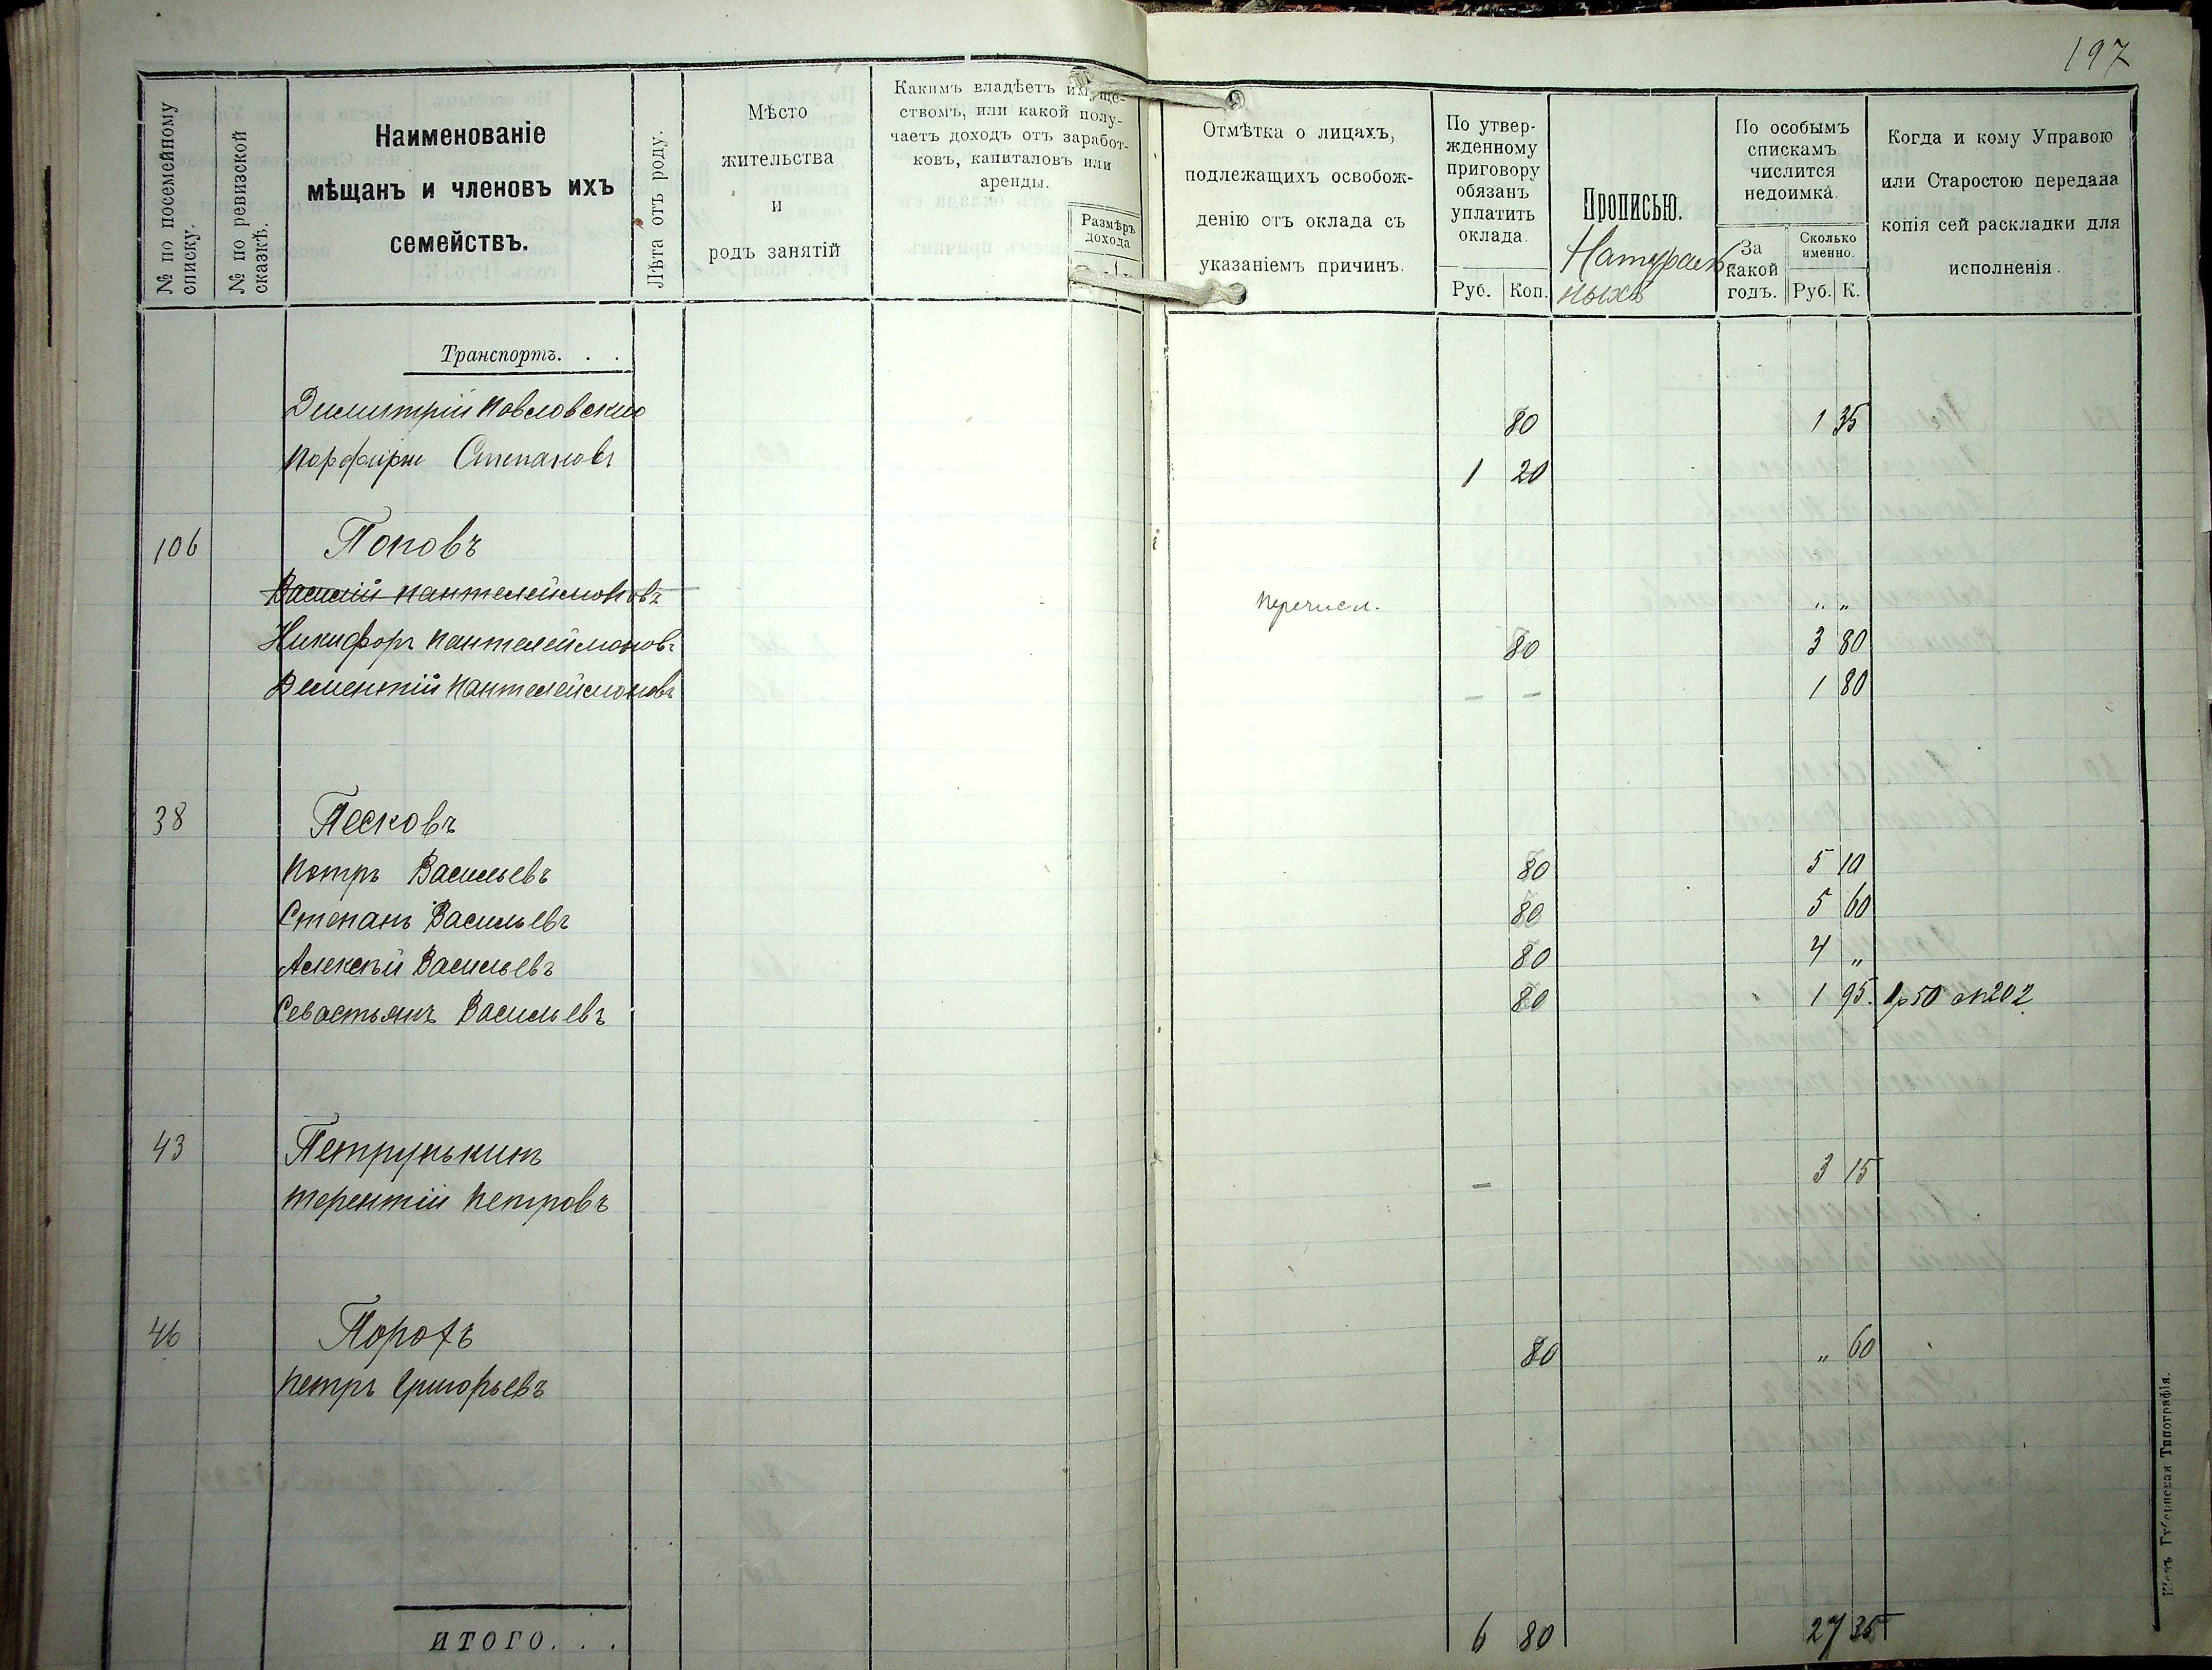 197
№ по посемейному списку.
№ по ревизской сказкѣ.
Наименованіе
мѣщанъ и членовъ ихъ
семействъ.
Лѣта отъ роду.
Мѣсто
жительства
и
родъ занятій
Какимъ владѣетъ имуще-
ствомъ, или какой полу-
чаетъ доходъ отъ заработ-
ковъ, капиталовъ или
аренды.
Размѣръ
дохода
Отмѣтка о лицахъ,
подлежащихъ освобож-
денію отъ оклада съ
указаніемъ причинъ.
По утвер-
жденному
приговору
обязанъ
уплатить
оклада.
Руб. Коп.
Прописью.
Натураль
ныхъ
По особымъ
спискамъ
числится
недоимка.
За
какой
годъ.
Сколько
именно.
Руб. К.
Когда и кому Управою
или Старостою передана
копія сей раскладки для
исполненія.
Транспортъ. . .
Димитрій Повловскио 80 1 35
Порфирій Степановъ 1 20
106 Поповъ
Василій Пантелеймоновъ перечисл. „ „
Никифоръ Пантелеймоновъ 80 3 80
Дементій Пантелеймоновъ – – 1 80
38 Песковъ
Петръ Васильевъ 80 5 10
Степанъ Васильевъ 80 5 60
Алексѣй Васильевъ 80 4 „
Севастьянъ Васильевъ 80 1 95. 1р50 №202
43 Петрунькинъ
Терентій Петровъ – 3 15
46 Порохъ
Петръ Григорьевъ 80 „ 60
ИТОГО. . . 6 80 27 35
Губернская Типографія.